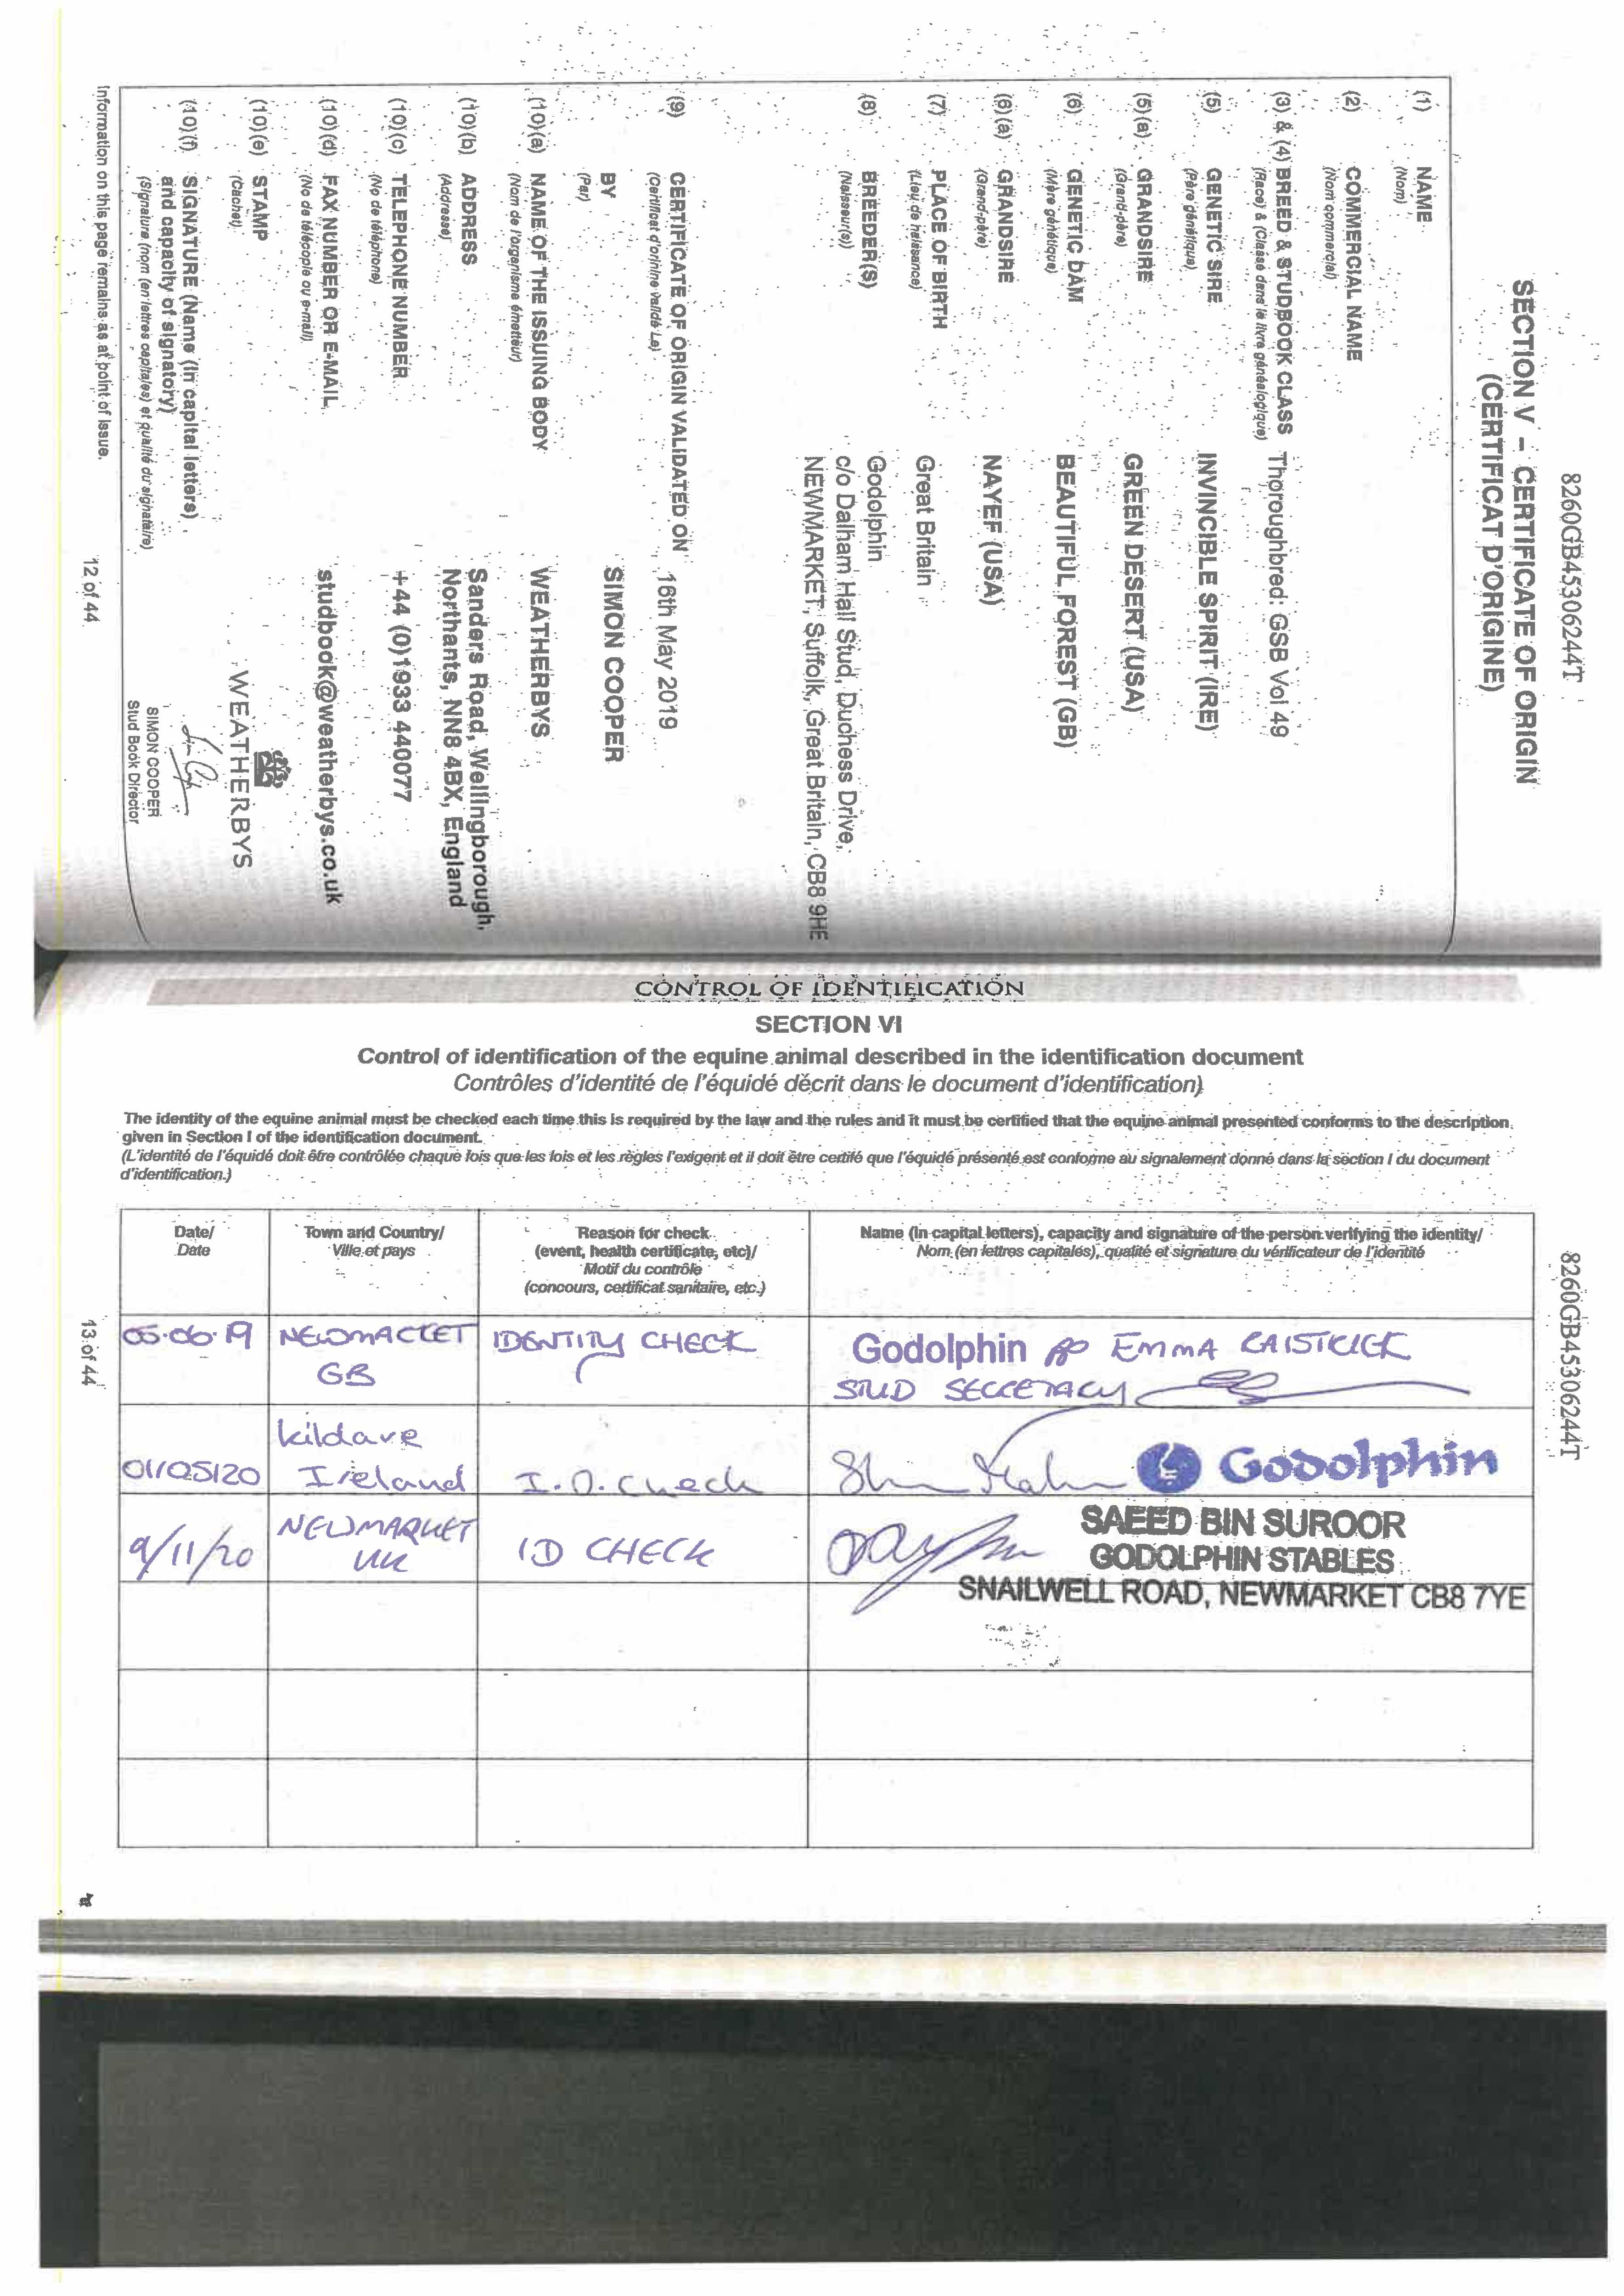 8260GB45306244T
SECTION V - CERTIFICATE OF ORIGIN
(CERTIFICAT D'ORIGINE)
(1) NAME
(Nom)
(2) COMMERCIAL NAME
(Nom commercial)
(3) & (4) BREED & STUDBOOK CLASS Thoroughbred: GSB Vol 49
(Race) & (Classé dans le livre généalogique)
(5) GENETIC SIRE INVINCIBLE SPIRIT (IRE)
(Père génétique)
(5)(a) GRANDSIRE GREEN DESERT (USA)
(Grand-père)
(6) GENETIC DAM BEAUTIFUL FOREST (GB)
(Mère génétique)
(6)(a) GRANDSIRE NAYEF (USA)
(Grand-père)
(7) PLACE OF BIRTH Great Britain
(Lieu de naissance)
(8) BREEDER(S) Godolphin
(Naisseur(s)) c/o Dalham Hall Stud, Duchess Drive,
NEWMARKET, Suffolk, Great Britain, CB8 9HE
(9) CERTIFICATE OF ORIGIN VALIDATED ON 16th May 2019
(Certificat d'origine validé Le)
BY SIMON COOPER
(Par)
(10)(a) NAME OF THE ISSUING BODY WEATHERBYS
(Nom de l'organisme émetteur)
(10)(b) ADDRESS Sanders Road, Wellingborough,
(Address) Northants, NN8 4BX, England
(10)(c) TELEPHONE NUMBER +44 (0)1933 440077
(No de téléphone)
(10)(d) FAX NUMBER OR E-MAIL studbook@weatherbys.co.uk
(No de télécopie ou e-mail)
(10)(e) STAMP WEATHERBYS
(Cachet)
(10)(f) SIGNATURE (Name (in capital letters)
and capacity of signatory)
(Signature (nom (en lettres capitales) et qualité du signataire)
SIMON COOPER
Stud Book Director
Information on this page remains as at point of issue.
12 of 44
CONTROL OF IDENTIFICATION
SECTION VI
Control of identification of the equine animal described in the identification document
Contrôles d'identité de l'équidé décrit dans le document d'identification)
The identity of the equine animal must be checked each time this is required by the law and the rules and it must be certified that the equine animal presented conforms to the description
given in Section I of the identification document.
(L'identité de l'équidé doit être contrôlée chaque fois que les lois et les règles l'exigent et il doit être certifé que l'équidé présenté est conforme au signalement donné dans la section I du document
d'identification.)
Date/ Town and Country/ Reason for check Name (in capital letters), capacity and signature of the person verifying the identity/
Date Ville et pays (event, health certificate, etc)/ Nom (en lettres capitales), qualité et signature du vérificateur de l'identité
Motif du contrôle
(concours, certificat sanitaire, etc.)
05.06.19 NEWMARKET IDENTITY CHECK Godolphin pp EMMA RAISTRICK
GB STUD SECRETARY
kildare
01/05/20 Ireland I.D. Check Godolphin
9/11/20 NEWMARKET ID CHECK SAEED BIN SUROOR
UK GODOLPHIN STABLES
SNAILWELL ROAD, NEWMARKET CB8 7YE
13 of 44
8260GB45306244T